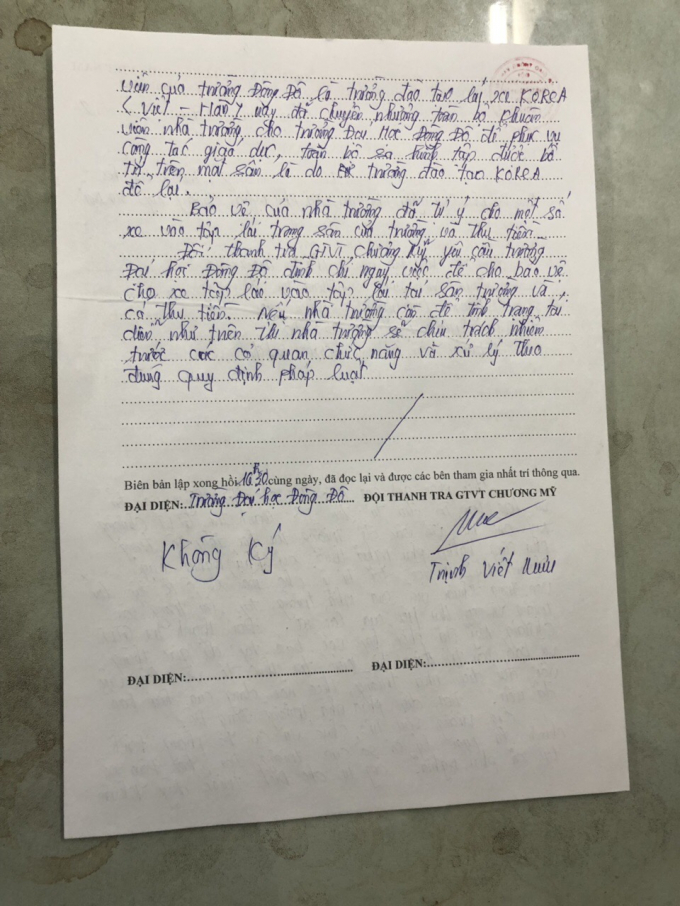 viên của trường Đông Đô là trường đào tạo lái xe KOREA
( Việt - Hàn ) này đã chuyển nhượng toàn bộ khuôn
viên nhà trường cho trường Đại Học Đông Đô để phục vụ
công tác giáo dục, toàn bộ sa hình tập được bố
trí trên mặt sân là do trường đào tạo KOREA
để lại.
Bảo vệ của nhà trường đã tự ý cho một số
xe vào tập lái trong sân của trường và thu tiền.
Đội thanh tra GTVT Chương Mỹ yêu cầu trường
Đại học Đông Đô đình chỉ ngay việc để cho bảo vệ
cho xe tập lái vào tập lái tại sân trường và
cả thu tiền. Nếu nhà trường còn để tình trạng tái
diễn như trên thì nhà trường sẽ chịu trách nhiệm
trước các cơ quan chức năng và xử lý theo
đúng quy định pháp luật
Biên bản lập xong hồi 16h30 cùng ngày, đã đọc lại và được các bên tham gia nhất trí thông qua.
ĐẠI DIỆN: Trường Đại học Đông Đô ĐỘI THANH TRA GTVT CHƯƠNG MỸ
Không Ký
Trịnh Viết
ĐẠI DIỆN: ĐẠI DIỆN: